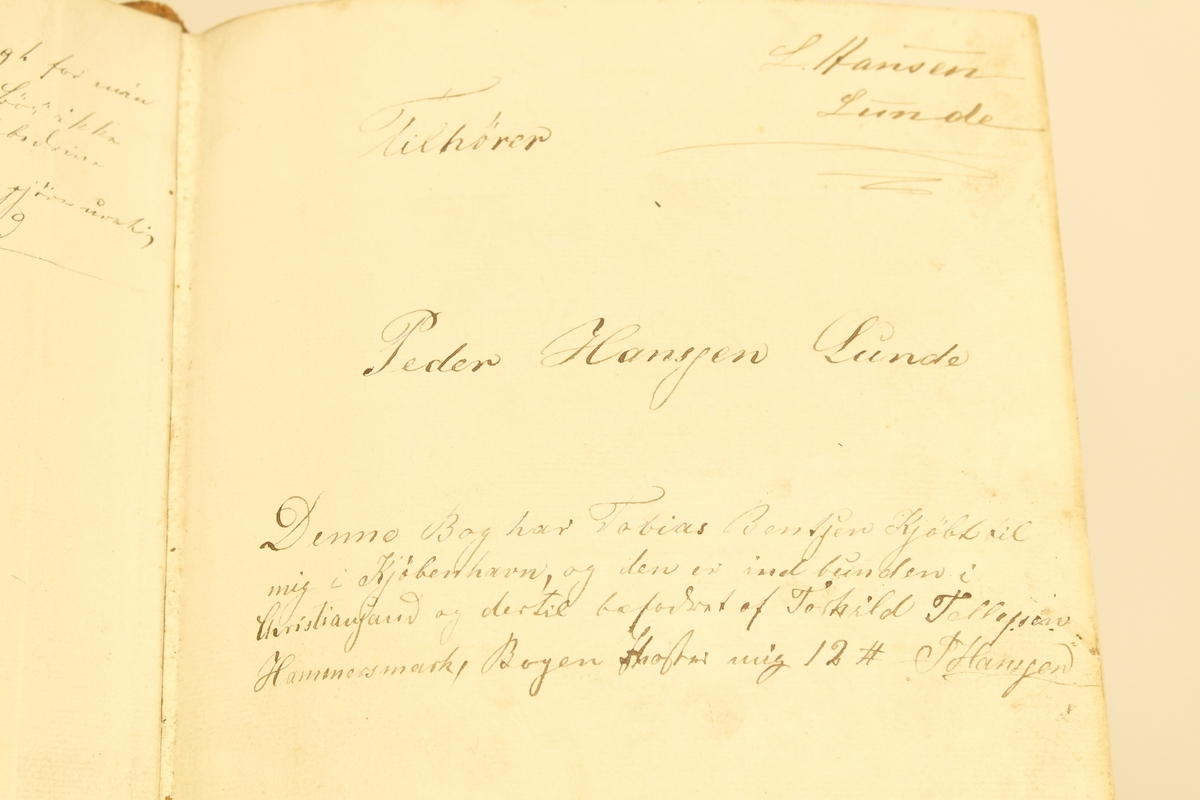 for man
ikke
L. Hansen
Lunde
Tilhører
Peder Hansen Lunde
Denne Bog har Tobias Bentsen Kjöbt til
mig i Kjöbenhavn, og den er ind bunden i
Christiansand og dertil befodret af Torkild Tellefsen
Hammersmark, Bogen Koster mig 12 # PHansen